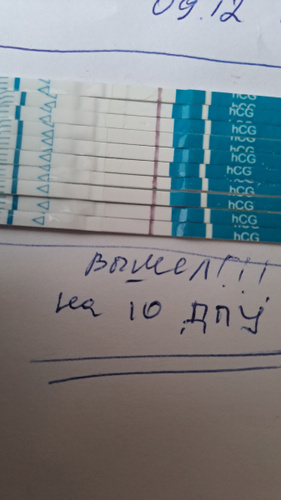 09.12
hCG
hCG
hCG
hCG
hCG
hCG
hCG
hCG
hCG
вышел!!!
на 10 ДПУ